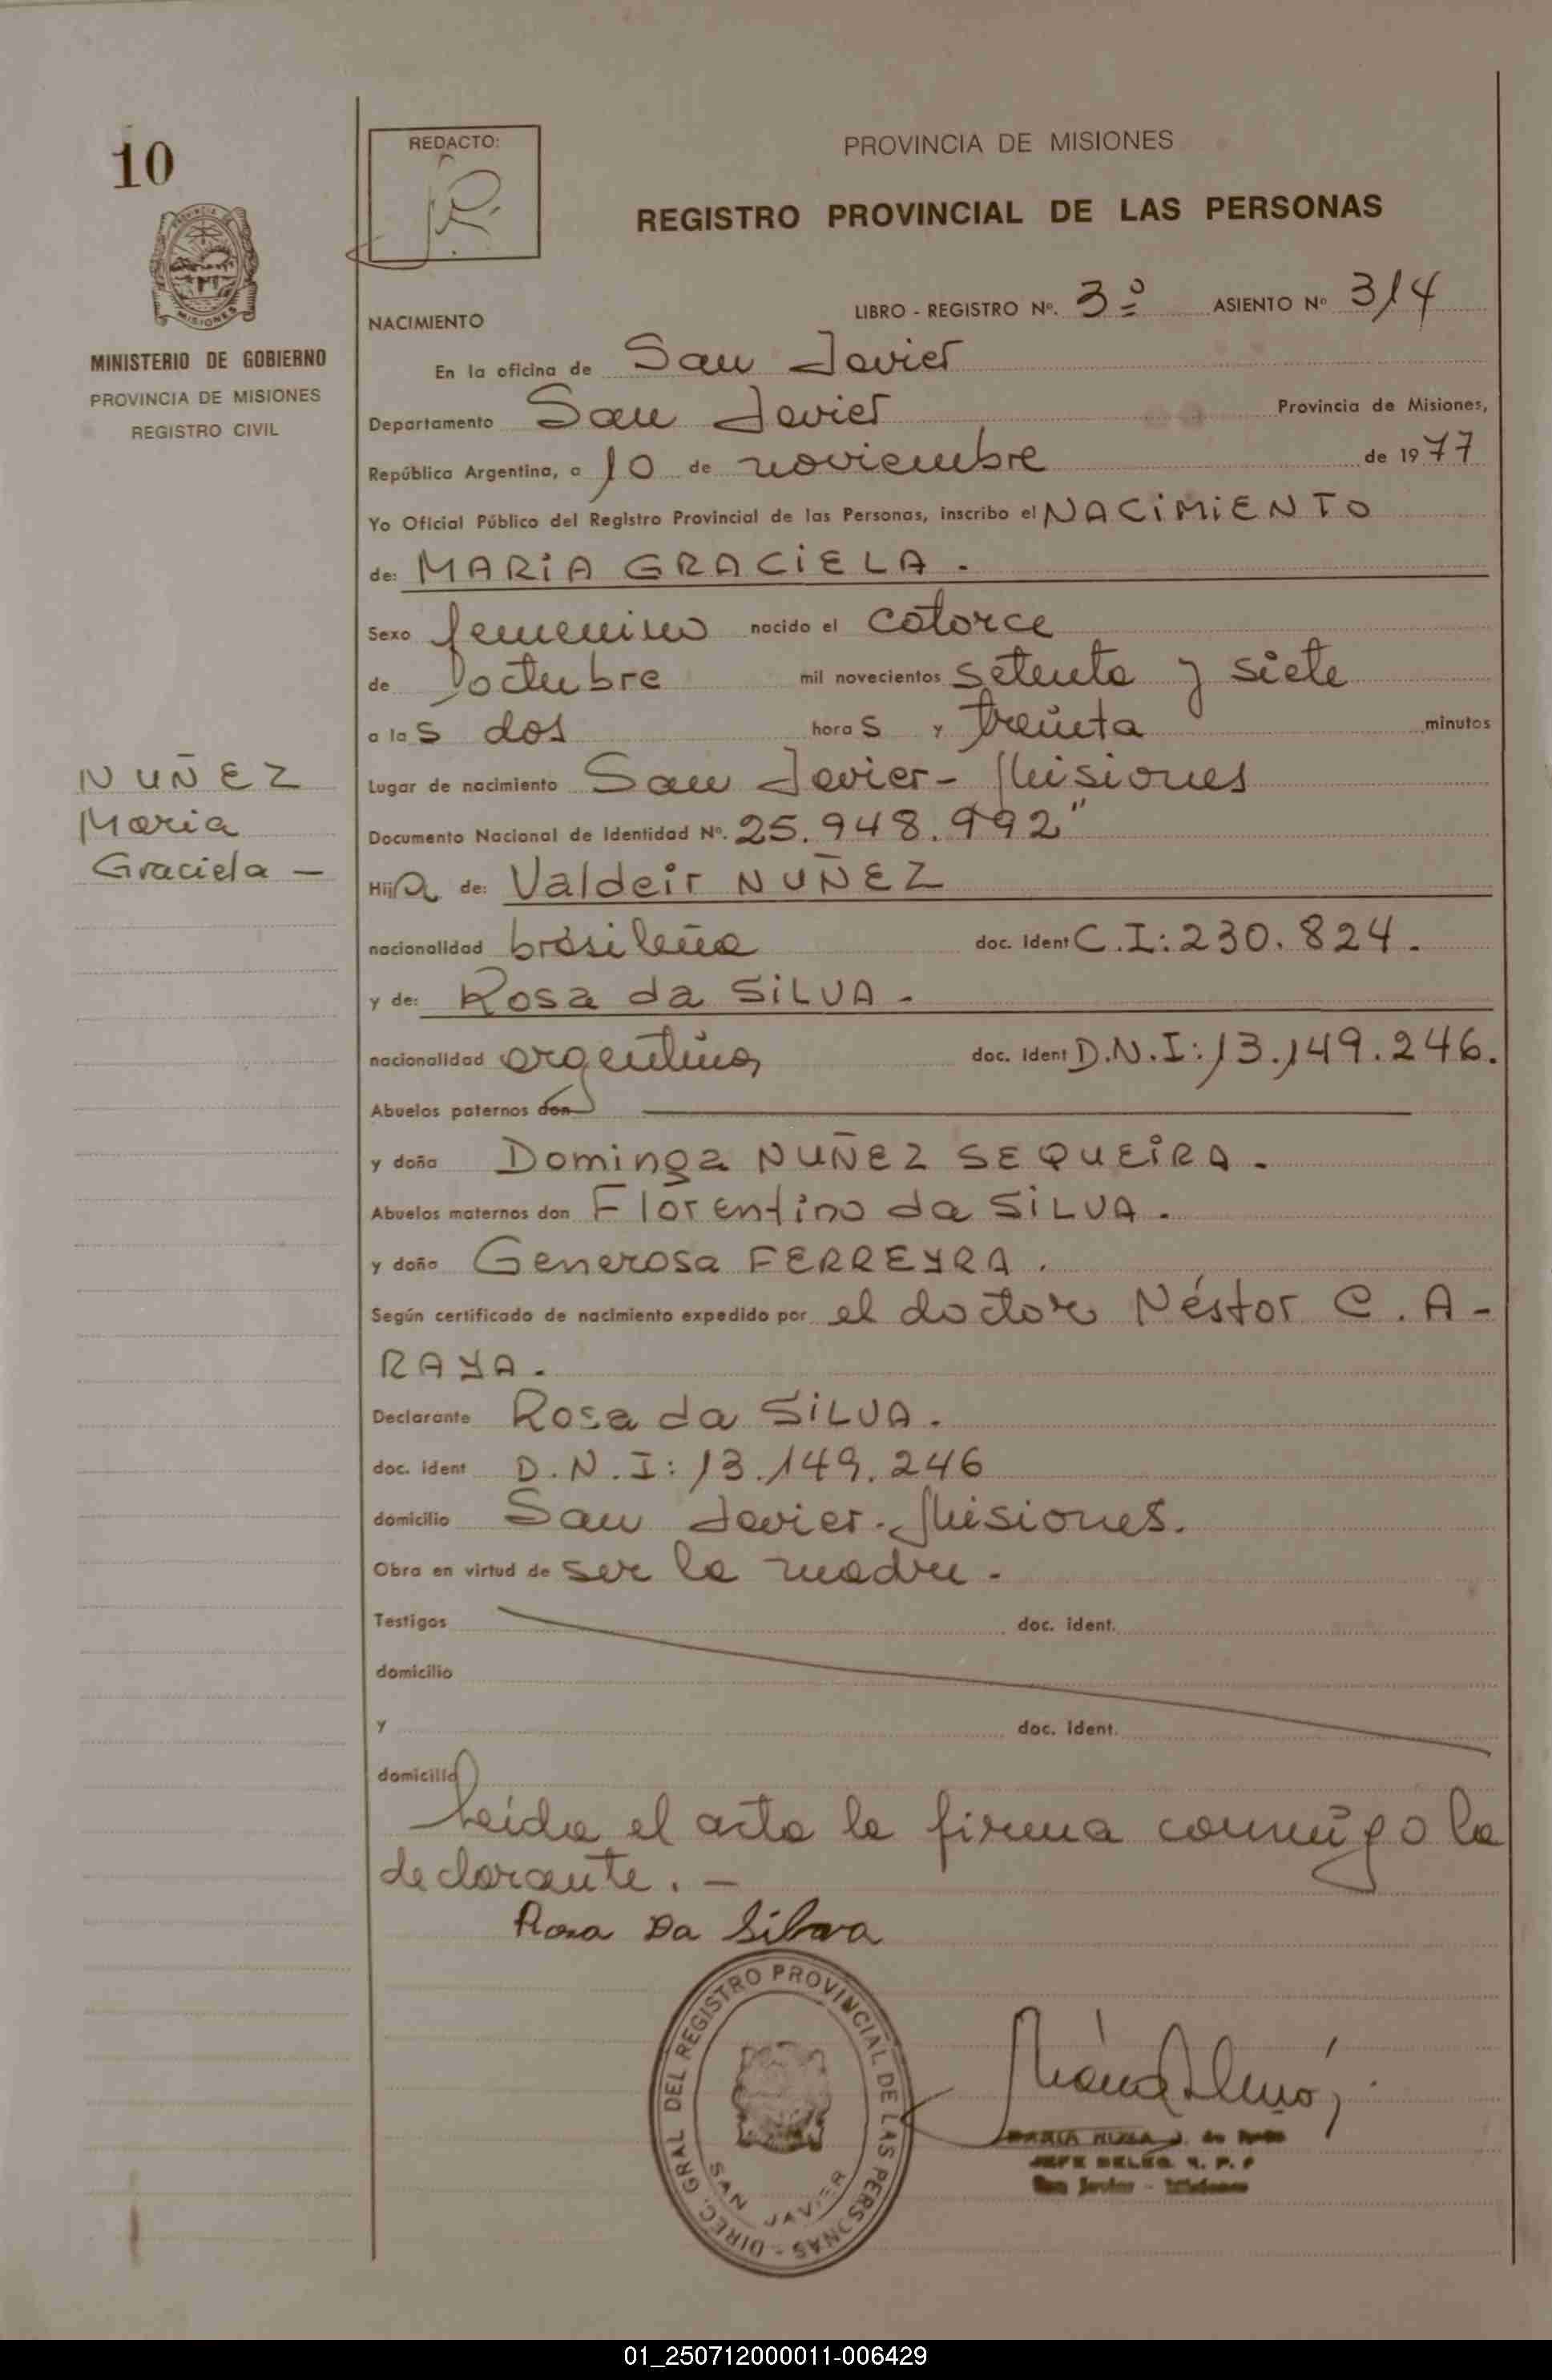 10
REDACTO:
PROVINCIA DE MISIONES
REGISTRO PROVINCIAL DE LAS PERSONAS
MISIONES
MINISTERIO DE GOBIERNO
PROVINCIA DE MISIONES
REGISTRO CIVIL
NACIMIENTO
LIBRO - REGISTRO Nº. 3º ASIENTO Nº 314
En la oficina de San Javier
Departamento San Javier Provincia de Misiones,
República Argentina, a 10 de noviembre de 1977
Yo Oficial Público del Registro Provincial de las Personas, inscribo el NACIMIENTO
de: MARIA GRACIELA.
Sexo femenino nacido el catorce
de octubre mil novecientos setenta y siete
a las dos horas y treinta minutos
NUÑEZ
Maria
Graciela —
Lugar de nacimiento San Javier - Misiones
Documento Nacional de Identidad Nº. 25.948.992"
Hija de: Valdeir NUÑEZ
nacionalidad brasileña doc. Ident C.I: 230.824.
y de: Rosa da SILVA.
nacionalidad argentina doc. Ident D.N.I: 13.149.246.
Abuelos paternos don
y doña Dominga NUÑEZ SEQUEIRA.
Abuelos maternos don Florentino da SILVA.
y doña Generosa FERREYRA.
Según certificado de nacimiento expedido por el doctor Néstor C. A-
RAYA.
Declarante Rosa da SILVA.
doc. ident D.N.I: 13.149.246
domicilio San Javier. Misiones.
Obra en virtud de ser la madre.
Testigos doc. ident.
domicilio
y doc. ident.
domicilio
Leída el acta la firma conmigo la
declarante. —
Rosa Da Silva
DIREC. GRAL DEL REGISTRO PROVINCIAL DE LAS PERSONAS -
SAN JAVIER
JEFE DELEG. R. P. P
San Javier - Misiones
01_250712000011-006429